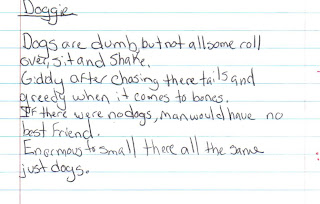 Doggie
Dogs are dumb, but not all some roll
over, sit and shake.
Giddy after chasing there tails and
greedy when it comes to bones.
If there were no dogs, man would have no
best Friend.
Enormous to small there all the same
just dogs.